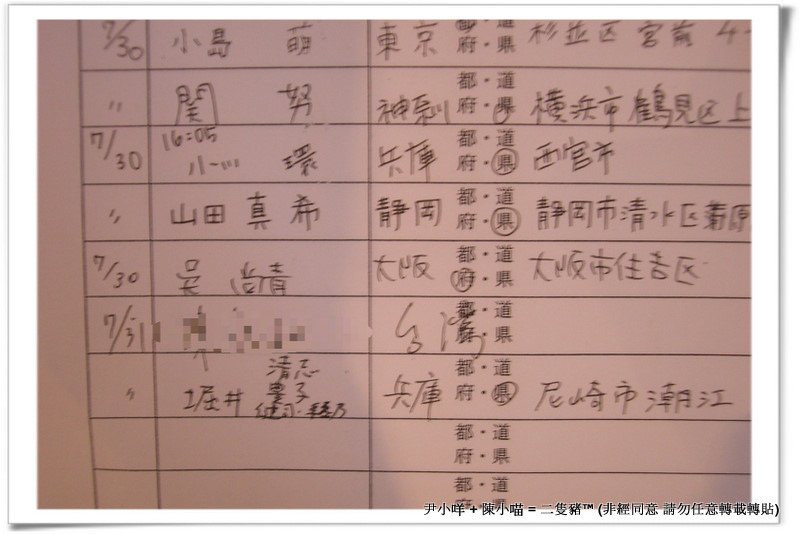 7/30 小島 萌 東京 都・道 府・県 杉並区 宮前 4-
〃 関 努 神奈川 都・道 府・県 横浜市鶴見区上
7/30 16:05 小川 環 兵庫 都・道 府・県 西宮市
〃 山田真希 静岡 都・道 府・県 静岡市清水区蒲原
7/30 呉 尚青 大阪 都・道 府・県 大阪市住吉区
7/31 台湾 都・道 府・県
〃 堀井 清志 豊子 兵庫 都・道 府・県 尼崎市潮江
都・道 府・県
都・道 府・県
尹小咩 + 陳小喵 = 二隻豬™ (非經同意 請勿任意轉載轉貼)